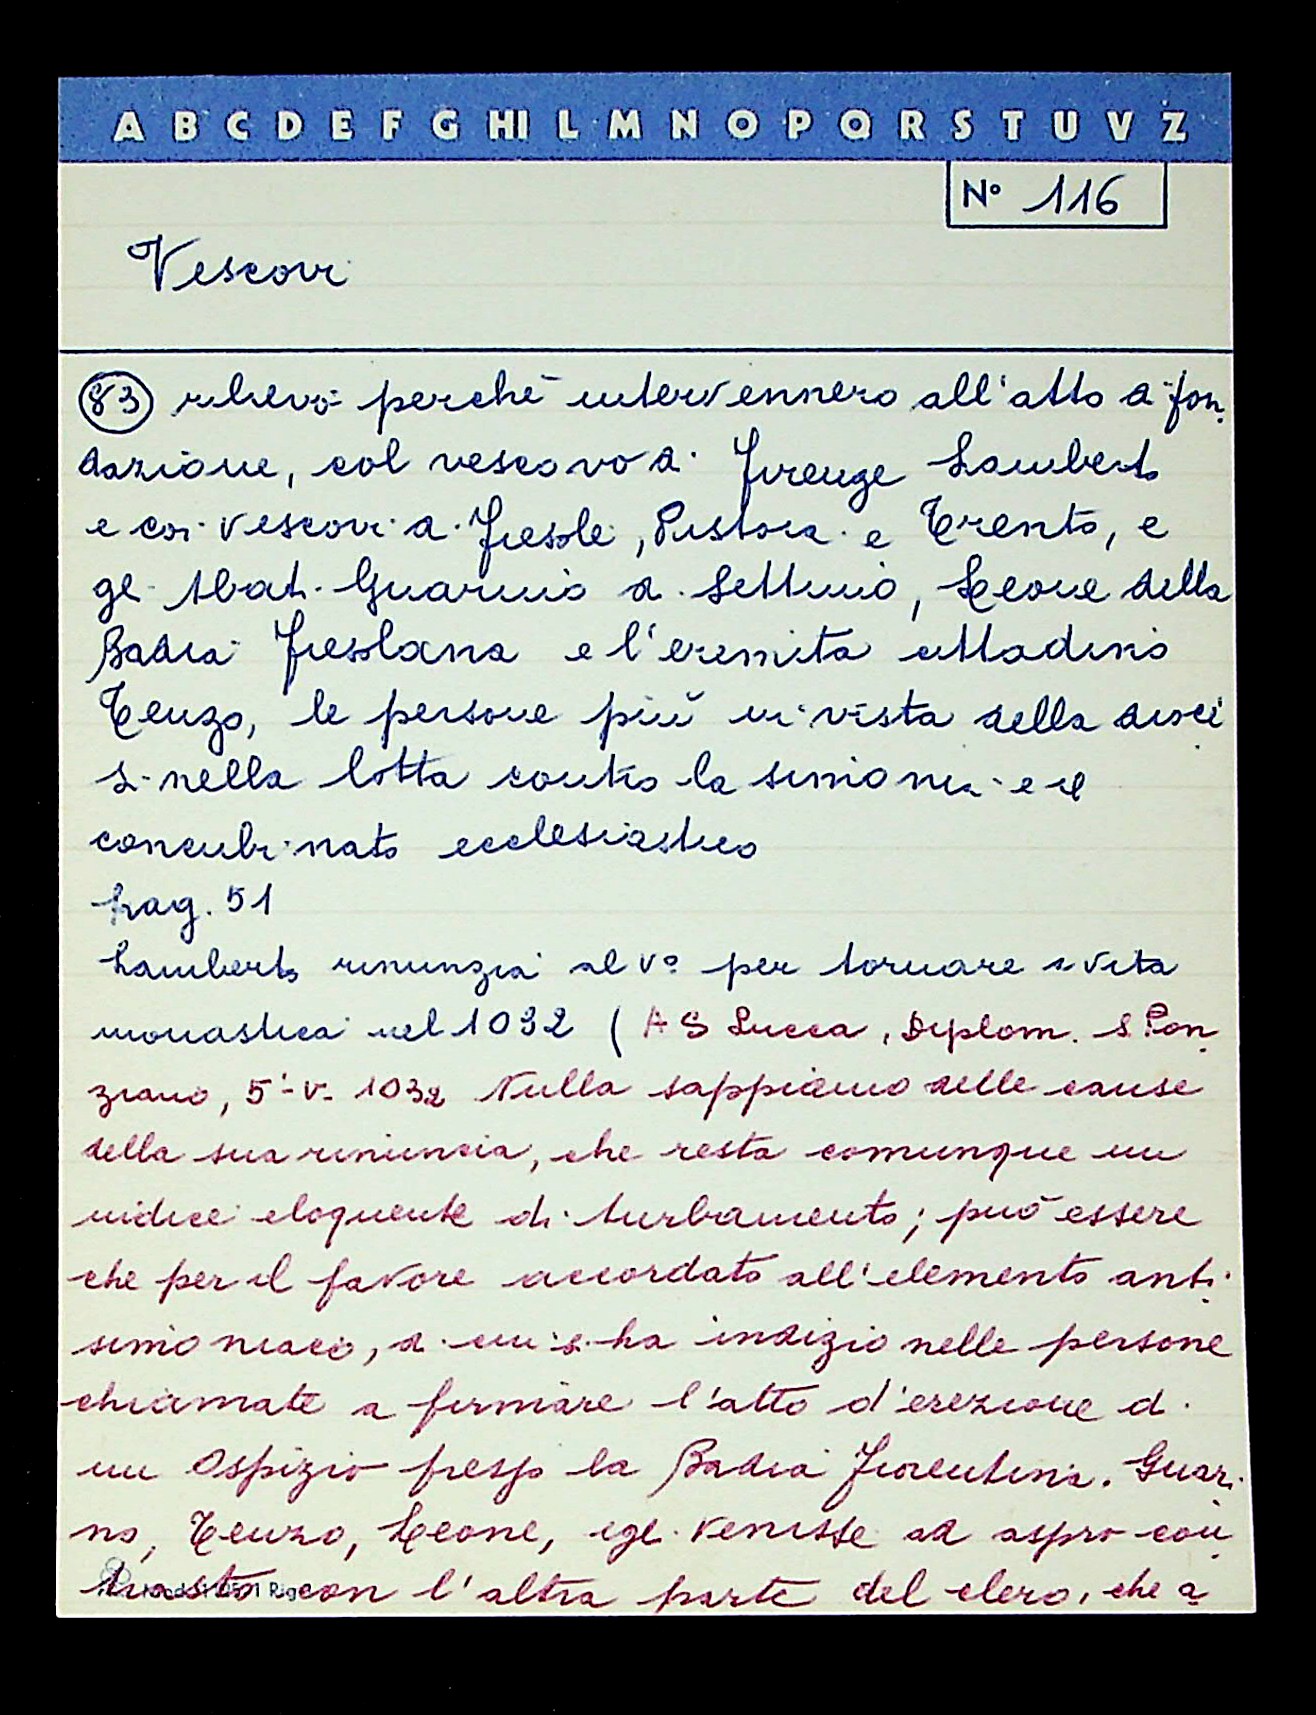 A B C D E F G HI L M N O P Q R S T U V Z
N° 116
Vescovi
83 rilievo perché intervennero all'atto di fon
dazione, col vescovo di Firenze Lamberto
e coi vescovi di Fiesole, Pistoia e Trento, e
gli Abati Guarino di Settimo, Leone della
Badia Fiesolana e l'eremita cittadino
Teuzo, le persone più in vista della dioce
si nella lotta contro la simonia e il
concubinato ecclesiastico
pag. 51
Lamberto rinunzia al v° per tornare a vita
monastica nel 1032 ( A S Lucca, Diplom. S. Pon
ziano, 5-V-1032 Nulla sappiamo delle cause
della sua rinuncia, che resta comunque un
indice eloquente di turbamento; può essere
che per il favore accordato all'elemento anti
simoniaco, di cui si ha indizio nelle persone
chiamate a firmare l'atto d'erezione di
un Ospizio presso la Badia Fiorentina. Guari
no, Teuzo, Leone, egli venisse ad aspro con
trasto con l'altra parte del clero, che a